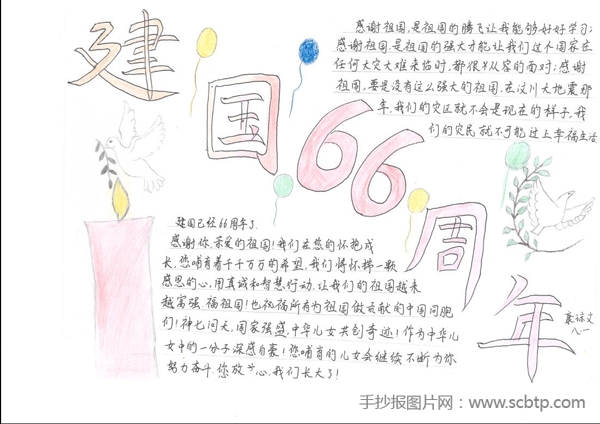 建国66周年
感谢祖国,是祖国的腾飞让我能够好好学习;
感谢祖国,是祖国的强大才能让我们这个国家在
任何大灾大难来临时,都很从容的面对;感谢
祖国,要是没有这么强大的祖国,在汶川大地震那
年,我们的灾区就不会是现在的样子,我
们的灾民就不可能过上幸福生活
建国已经66周年了.
感谢你,亲爱的祖国!我们在您的怀抱成
长,您哺育着千千万万的希望,我们将怀揣一颗
感恩的心,用真诚和智慧行动,让我们的祖国越来
越富强.福祖国!也祝福所有为祖国做贡献的中国同胞
们!神七问天,国家强盛,中华儿女共创奇迹!作为中华儿
女中的一分子深感自豪!您哺育的儿女会继续不断为你
努力奋斗.您放心,我们长大了!
八一
手抄报图片网:www.scbtp.com